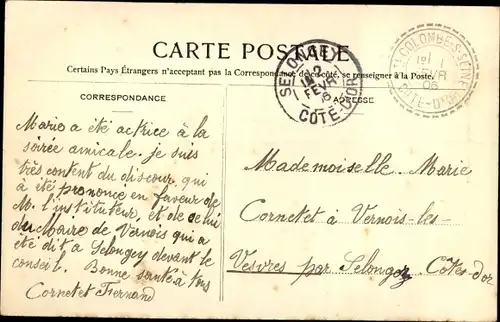 CARTE POSTALE
Certains Pays Étrangers n'acceptant pas la Correspondance de ce côté, se renseigner à la Poste.
CORRESPONDANCE
ADRESSE
SELONGEY
2
FEVR
CÔTE-D'OR
Sᵗᴱ COLOMBE-S-SEINE
1
FEVR
06
CÔTE-D'OR
Marie a été actrice à la
soirée amicale. je suis
très content du discour. qui
a été prononcé en faveur de
M. l'instituteur, et de celui
du Maire de Vernois qui a
été dit a Selongey devant le
conseil. Bonne santé à tous
Cornetet Fernand
Mademoiselle Marie
Cornetet à Vernois-les-
Vesvres par Selongey Côte-d'or